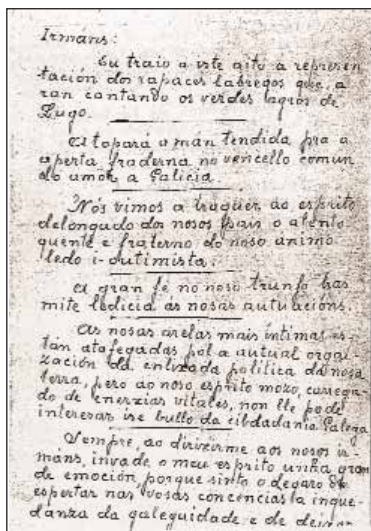 Irmáns:
Eu traio a iste aito a represen
tación dos rapaces labregos que, a
ran cantando os verdes agros de
Lugo.
Atopará a man tendida pra a
aperta fraderna no vencello comun
do amor a Galicia.
Nós vimos a traguer ao esprito
delongado dos nosos pais o alento
quente e fraterno do noso ánimo
ledo i-outimista.
A gran fe no noso trunfo tras
mite ledicia ás nosas autuacións.
As nosas arelas mais íntimas es-
tan atafegadas pol-a autual orgai-
zación da enlixada política da nosa
terra, pero ao noso esprito mozo, carrega
do de enerxías vitales, non lle pode
interesar ise bullo da cibdadanía Galega
Sempre, ao dirixirme aos nosos ir-
máns, invade o meu esprito unha gran
de emoción, porque sinto o degaro de
espertar nas vosas concencias la inque-
danza da galeguidade e de